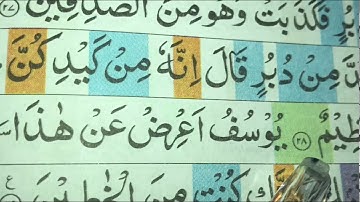 بُرٍ فَكَذَبَتْ وَهُوَ مِنَ الصّٰدِقِيْنَ ﴿۲۷﴾
دَّ مِنْ دُبُرٍ قَالَ اِنَّهٗ مِنْ كَيْدِكُنَّ
ظِيْمٌ ﴿۲۸﴾ يُوْسُفُ اَعْرِضْ عَنْ هٰذَا
كُنْتِ مِنَ الْخٰطِـِٕيْنَ